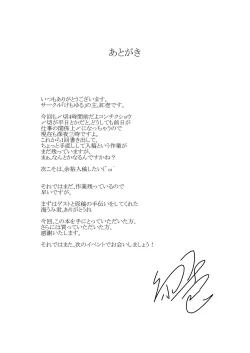 あとがき
いつもありがとうございます。
サークル「けもゆる」の主、紅壱です。
今回も〆切4時間前だよコンチクショウ
〆切が平日とかだと、どうしても前日が
仕事の関係上〆になっちゃうので
現在も深夜三時ですよ。
これから1回書き出して、
ちょっと手直しして入稿という作業が
まだ残っていますが、
まぁ、なんとかなるんですかね？
次こそは、余裕入稿したい(´ω`
それではまだ、作業残っているので
早いですが、
まずはゲストと原稿の手伝いをしてくれた
海うみ君、ありがとうね
今回、この本を手にとっていただいた方、
さらには買っていただいた方、
感謝いたします。
それではまた、次のイベントでお会いしましょう！